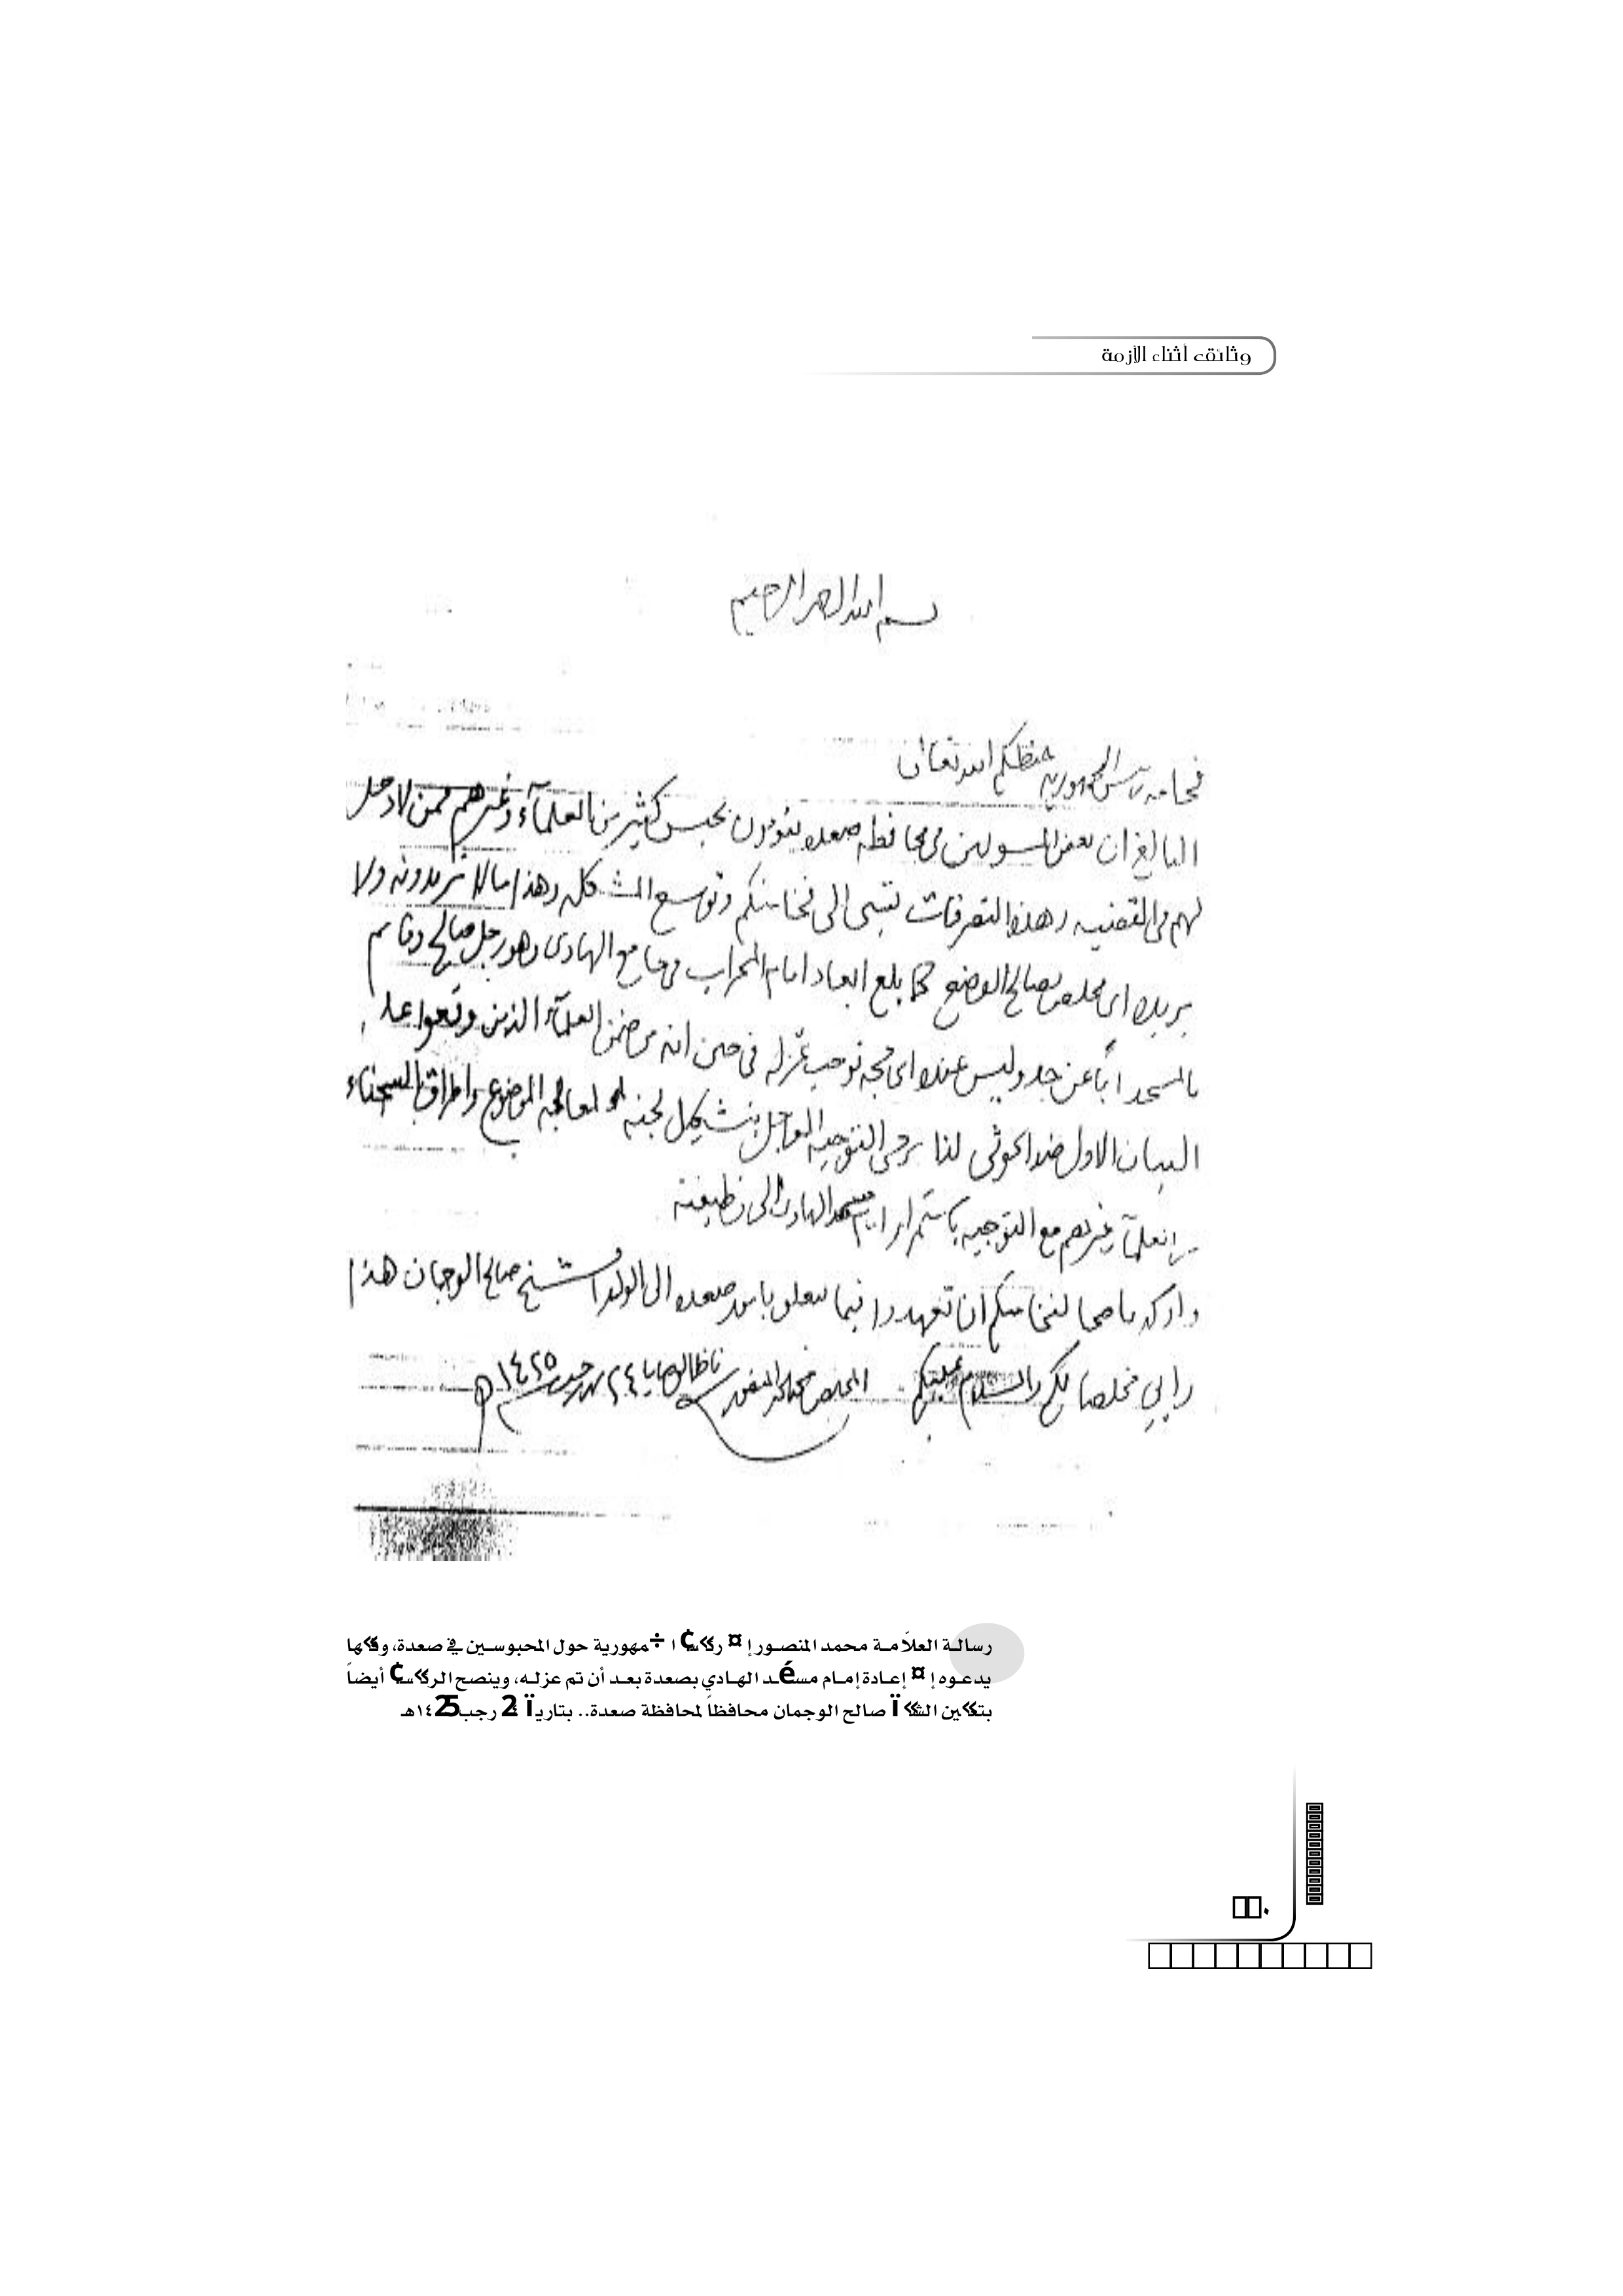 وثائق أثناء الأزمة
بسم الله الرحمن الرحيم
فخامة رئيس الجمهورية حفظكم الله تعالى
ان بعض المسولين في محافظه صعده يقومون بحبس كثير من العلمآء وغيرهم ممن لا دخل
لهم في القضيه وهذه التصرفات تسي الى فخامتكم وتوسع المشكله وهذا مالا تريدونه ولا
يريده اي مخلص لصالح الوضع كما بلغ ابعاد امام المحراب في جامع الهادي وهو رجل صالح وقائم
بالمسجد اباً عن جد وليس عنده اي حجه توجب عزله في حين انه من ضمن العلمآء الذين وقعوا على
البيان الاول ضد الحوثي لذا نرجى التوجيه العاجل بتشكيل لجنه لمعالجه الموضوع واطلاق السجناء
العلمآء وغيرهم مع التوجيه باستمرار امام مسجد الهادي الى وظيفته
لفخامتكم ان تعهدوا فيما يتعلق بامر صعده الى الولد الشيخ صالح الوجمان هذا
واني مخلصا لكم والسلام عليكم المخلص محمد محمد المنصور ناظر الوصايا ٢٤ شهر رجب ١٤٢٥
رسالة العلاّمة محمد المنصور إ¤ رئيس¢ ا÷مهورية حول المحبوسين في صعدة، وفيها
يدعوه إ¤ إعادة إمام مسéد الهادي بصعدة بعد أن تم عزله، وينصح الرئيس¢ أيضاً
صالح الوجمان محافظاً لمحافظة صعدة.. بتاريï 2 رجب ١٤25هـ